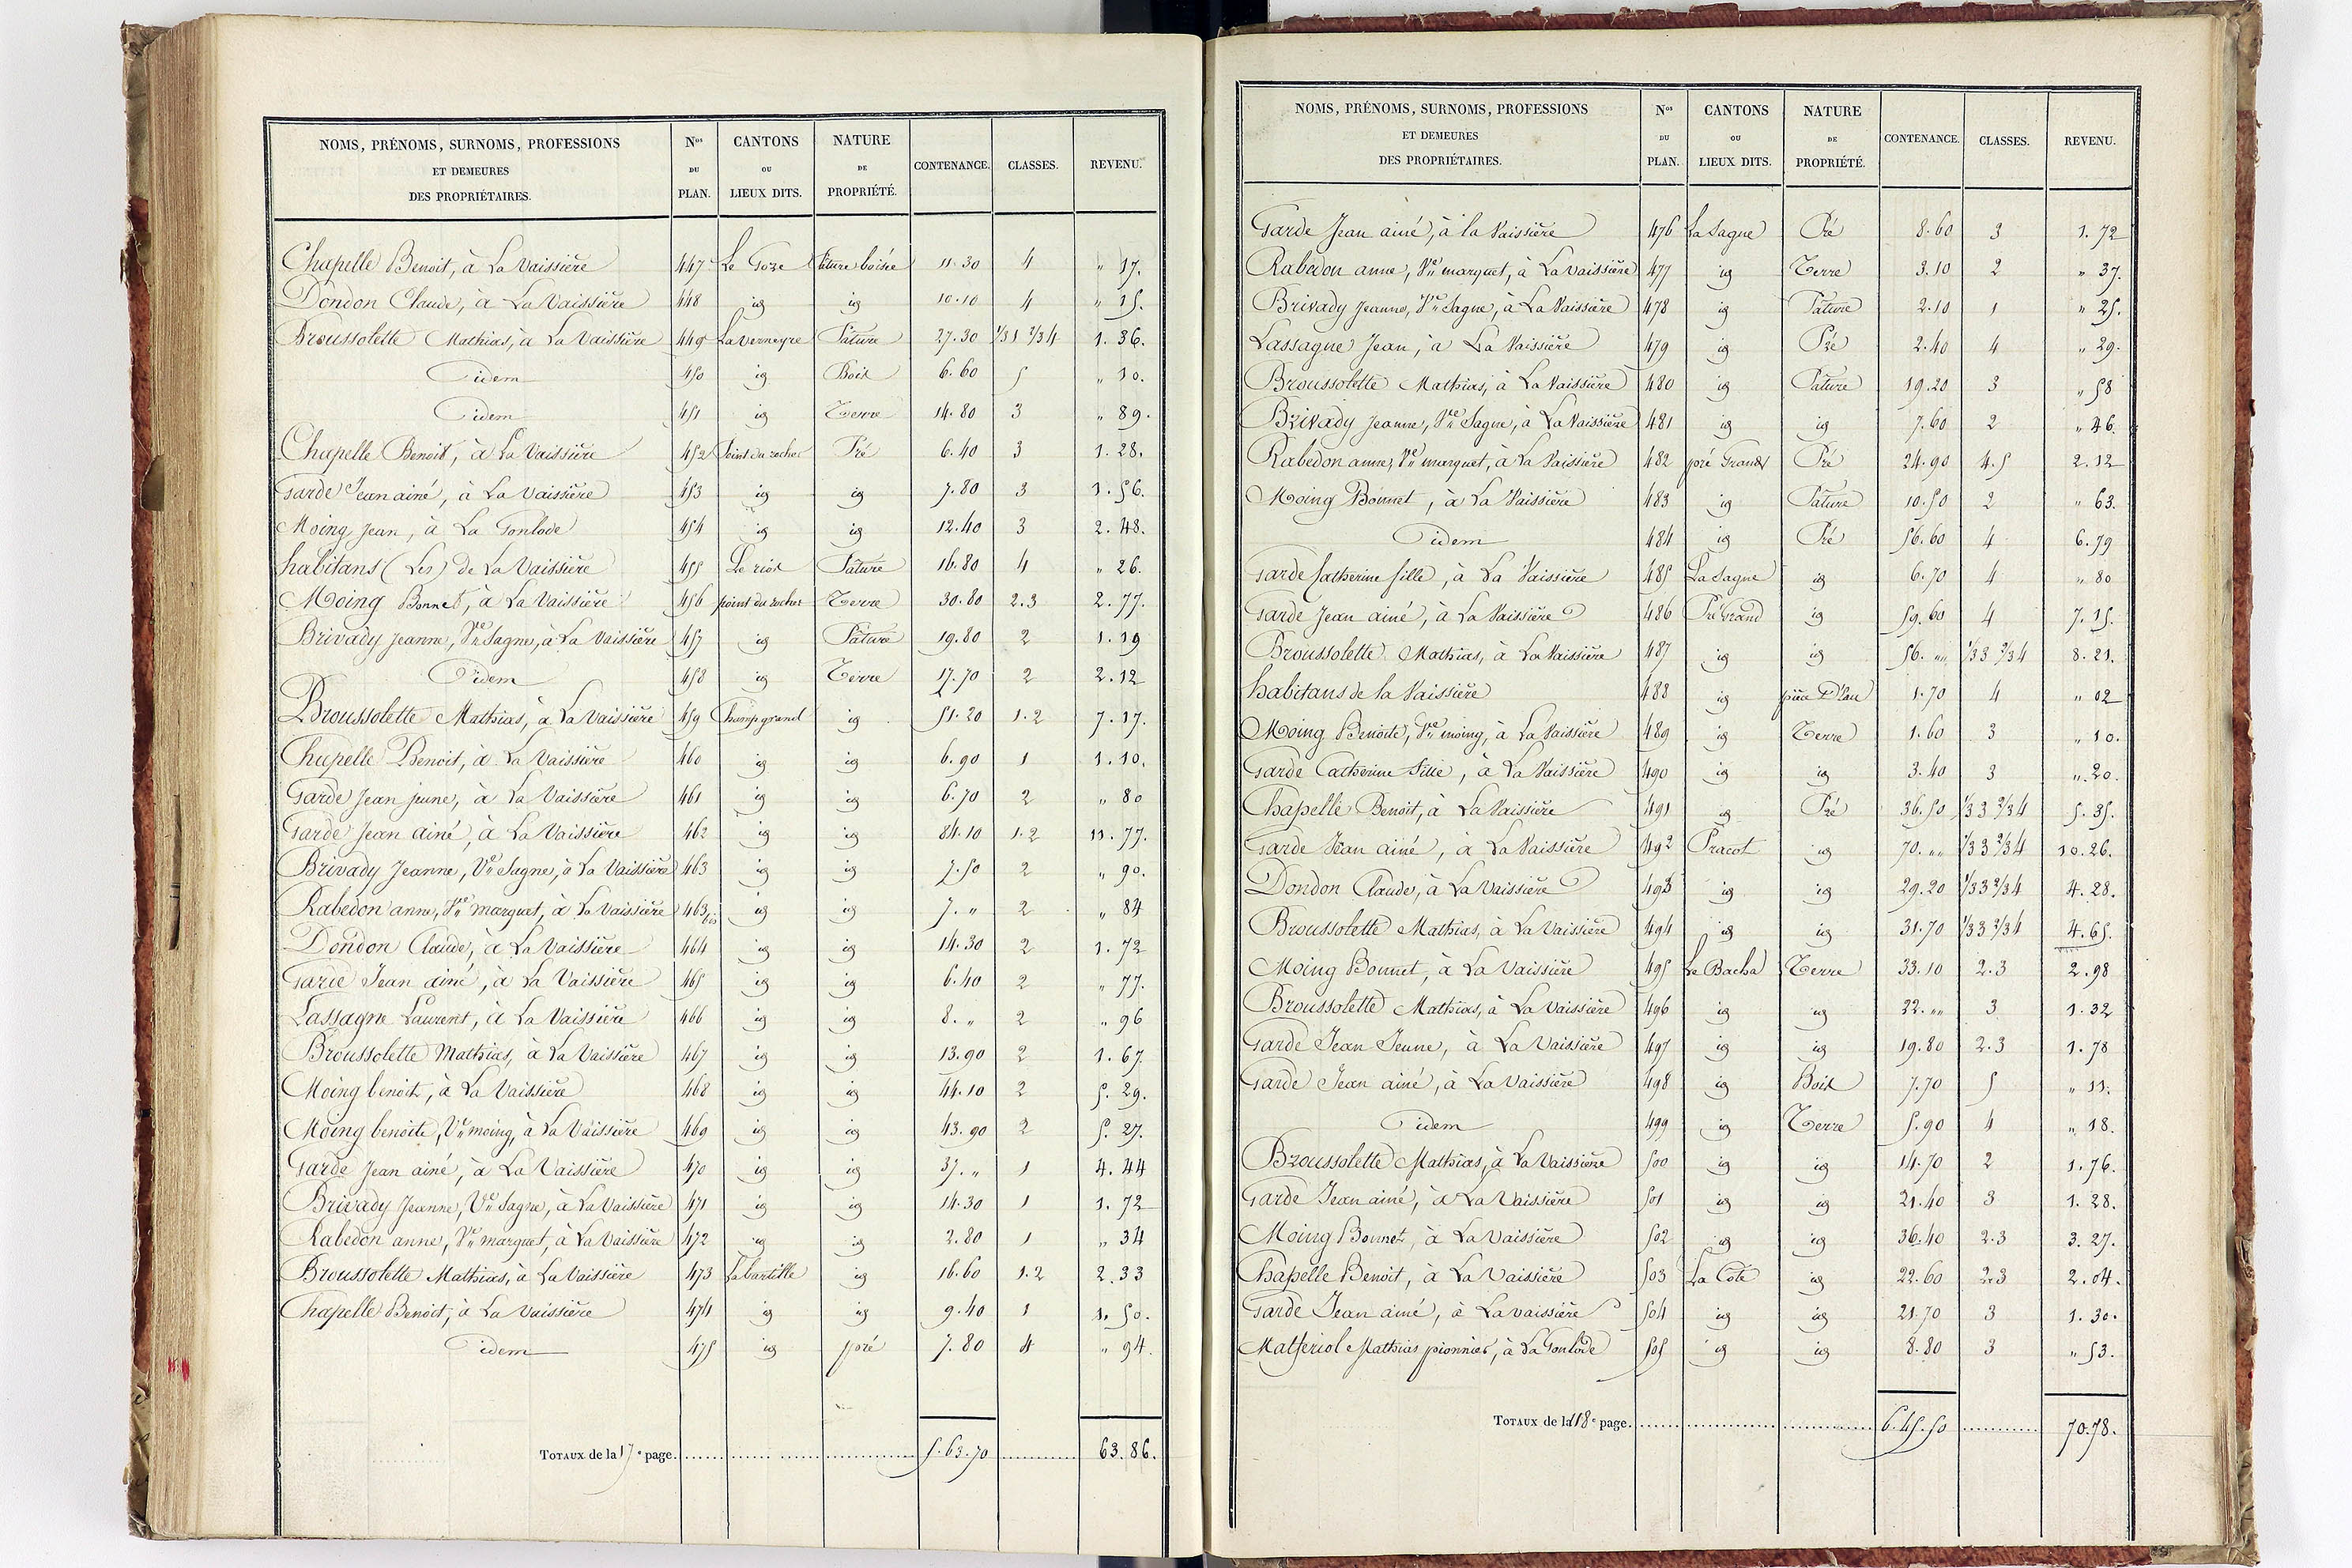 NOMS, PRÉNOMS, SURNOMS, PROFESSIONS ET DEMEURES DES PROPRIÉTAIRES. Nos DU PLAN. CANTONS OU LIEUX DITS. NATURE DE PROPRIÉTÉ. CONTENANCE. CLASSES. REVENU.
Chapelle Benoit, à La Vaissière 447 Le Goze Pature boisée 11.30 4 " 17.
Dondon Claude, à La Vaissière 448 id id 10.10 4 " 15.
Broussolette Mathias, à La Vaissière 449 La Verneyre Pature 27.30 1/3 1 2/3 4 1.36.
idem 450 id Bois 6.60 5 " 10.
idem 451 id Terre 14.80 3 " 89.
Chapelle Benoit, à La Vaissière 452 Point du rocher Pré 6.40 3 1.28.
Garde Jean ainé, à La Vaissière 453 id id 7.80 3 1.56.
Moing Jean, à La Gonlode 454 id id 12.40 3 2.48.
habitans (Les) de La Vaissière 455 Le riou Pature 16.80 4 " 26.
Moing Bonnet, à La Vaissière 456 point du rocher Terre 30.80 2.3 2.77.
Brivady Jeanne, Ve Sagne, à La Vaissière 457 id Pature 19.80 2 1.19
idem 458 id Terre 17.70 2 2.12
Broussolette Mathias, à La Vaissière 459 Champ grand id 51.20 1.2 7.17.
Chapelle Benoit, à La Vaissière 460 id id 6.90 1 1.10.
Garde Jean jeune, à La Vaissière 461 id id 6.70 2 " 80
Garde Jean ainé, à La Vaissière 462 id id 84.10 1.2 11.77.
Brivady Jeanne, Ve Sagne, à La Vaissière 463 id id 7.50 2 " 90.
Rabedon anne, Ve marquet, à La Vaissière 463 bis id id 7. " 2 " 84
Dondon Claude, à La Vaissière 464 id id 14.30 2 1.72
Garde Jean ainé, à La Vaissière 465 id id 6.40 2 " 77.
Lassagne Laurent, à La Vaissière 466 id id 8. " 2 " 96
Broussolette Mathias, à La Vaissière 467 id id 13.90 2 1.67.
Moing benoit, à La Vaissière 468 id id 44.10 2 5.29.
Moing benoite, Ve moing, à La Vaissière 469 id id 43.90 2 5.27.
Garde Jean ainé, à La Vaissière 470 id id 37. " 1 4.44
Brivady Jeanne, Ve Sagne, à La Vaissière 471 id id 14.30 1 1.72
Rabedon anne, Ve marquet, à La Vaissière 472 id id 2.80 1 " 34
Broussolette Mathias, à La Vaissière 473 La bartille id 16.60 1.2 2.33
Chapelle Benoit, à La Vaissière 474 id id 9.40 1 1.50.
idem 475 id pré 7.80 4 " 94.
TOTAUX de la 17e page. 5.63.70 63.86.
NOMS, PRÉNOMS, SURNOMS, PROFESSIONS ET DEMEURES DES PROPRIÉTAIRES. Nos DU PLAN. CANTONS OU LIEUX DITS. NATURE DE PROPRIÉTÉ. CONTENANCE. CLASSES. REVENU.
Garde Jean ainé, à la Vaissière 476 La Sagne Pré 8.60 3 1.72
Rabedon anne, Ve marquet, à La Vaissière 477 id Terre 3.10 2 " 37.
Brivady Jeanne, Ve Sagne, à La Vaissière 478 id Pature 2.10 1 " 25.
Lassagne Jean, à La Vaissière 479 id Pré 2.40 4 " 29.
Broussolette Mathias, à La Vaissière 480 id Pature 19.20 3 " 58
Brivady Jeanne, Ve Sagne, à La Vaissière 481 id id 7.60 2 " 46.
Rabedon anne, Ve marquet, à La Vaissière 482 pré Grand Pré 24.90 4.5 2.12
Moing Bonnet, à La Vaissière 483 id Pature 10.50 2 " 63.
idem 484 id Pré 56.60 4 6.79
Garde Catherine fille, à La Vaissière 485 La Sagne id 6.70 4 " 80
Garde Jean ainé, à La Vaissière 486 Pré Grand id 59.60 4 7.15.
Broussolette Mathias, à La Vaissière 487 id id 56. "" 1/3 3 2/3 4 8.21.
habitans de la Vaissière 488 id pièce D'eau 1.70 4 " 02
Moing Benoite, Ve moing, à La Vaissière 489 id Terre 1.60 3 " 10.
Garde Catherine fille, à La Vaissière 490 id id 3.40 3 " 20.
Chapelle Benoit, à La Vaissière 491 id Pré 36.50 1/3 3 2/3 4 5.35.
Garde Jean ainé, à La Vaissière 492 Pracot id 70. "" 1/3 3 2/3 4 10.26.
Dondon Claude, à La Vaissière 493 id id 29.20 1/3 3 2/3 4 4.28.
Broussolette Mathias, à La Vaissière 494 id id 31.70 1/3 3 2/3 4 4.65.
Moing Bonnet, à La Vaissière 495 Le Bacha Terre 33.10 2.3 2.98
Broussolette Mathias, à La Vaissière 496 id id 22. "" 3 1.32
Garde Jean Jeune, à La Vaissière 497 id id 19.80 2.3 1.78
Garde Jean ainé, à La Vaissière 498 id Bois 7.70 5 " 11.
idem 499 id Terre 5.90 4 " 18.
Broussolette Mathias, à La Vaissière 500 id id 14.70 2 1.76.
Garde Jean ainé, à La Vaissière 501 id id 21.40 3 1.28.
Moing Bonnet, à La Vaissière 502 id id 36.40 2.3 3.27.
Chapelle Benoit, à La Vaissière 503 La Côte id 22.60 2.3 2.04.
Garde Jean ainé, à La vaissière 504 id id 21.70 3 1.30.
Matheriol Mathias pionnier, à La Gonlode 505 id id 8.80 3 " 53.
TOTAUX de la 18e page. 6.45.50 70.78.